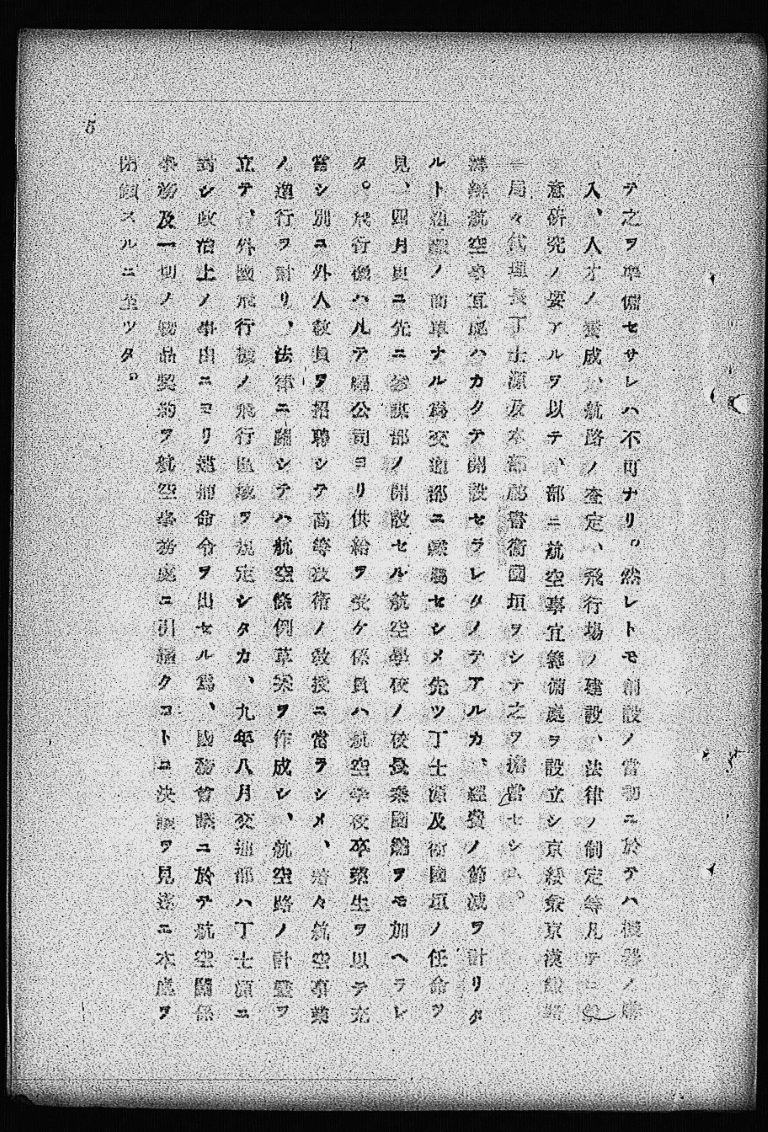 テ之ヲ準備セサレハ不可ナリ。然レトモ創設ノ當初ニ於テハ機器ノ購
入、人才ノ養成、航路ノ査定、飛行場ノ建設、法律ノ制定等凡テニ
意研究ノ要アルヲ以テ、部ニ航空事宜籌備處ヲ設立シ京綏兼京漢鐵路
局々代理長丁士源及本部部警衛國垣ヲシテ之ヲ擔當セシム。
籌辦航空事宜處ハカクテ開設セラレタノテアルカ、經費ノ節減ヲ計リタ
ルト組織ノ簡單ナル為交通部ニ隷屬セシメ先ツ丁士源及衛國垣ノ任命ヲ
見、四月更ニ先ニ參謀部ノ開設セル航空學校ノ校長秦國鏞ヲモ加ヘラレ
タ。飛行機ハ凡テ公司ヨリ供給ヲ受ケ係員ハ航空學校卒業生ヲ以テ充
當シ別ニ外人教員ヲ招聘シテ高等技術ノ教授ニ當ラシメ、着々航空事業
ノ進行ヲ計リ、法律ニ關シテハ航空條例草案ヲ作成シ、航空路ノ計畫ヲ
立テ、外國飛行機ノ飛行區域ヲ規定シタカ、九年八月交通部ハ丁士源ニ
對シ政治上ノ事由ニヨリ逮捕命令ヲ出セル為、國務會議ニ於テ航空關係
事務及一切ノ機品契約ヲ航空事務處ニ引繼クコトニ決議ヲ見遂ニ本處ヲ
閉鎖スルニ至ツタ。
5